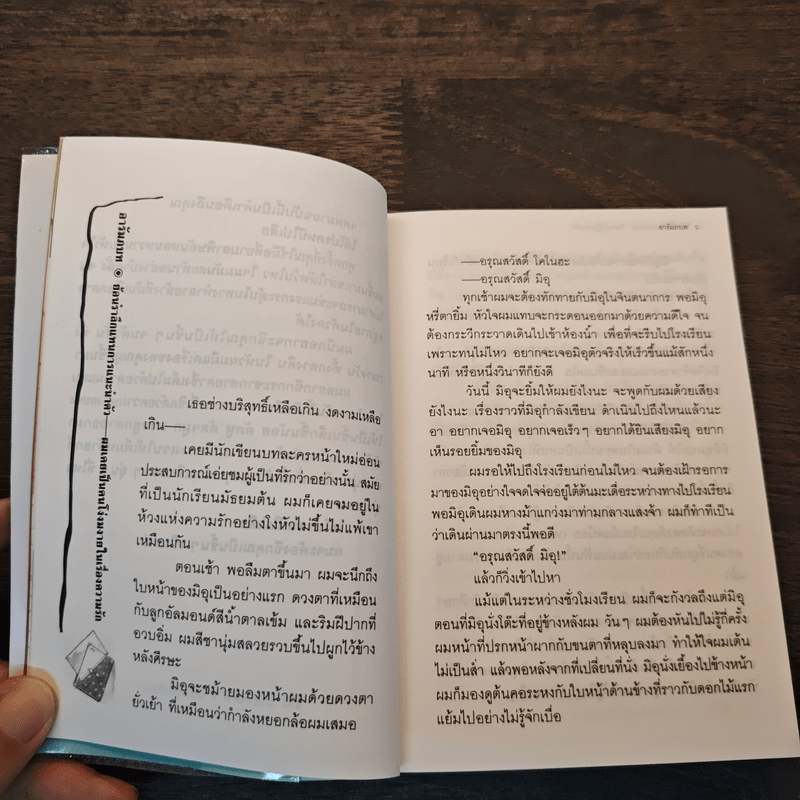 อารัมภบท ข้อบรรเลงแทนการแนะนำตัว—ผมเคยเป็นคนโง่งมงายในเรื่องความรัก
เธอช่างบริสุทธิ์เหลือเกิน งดงามเหลือ
เกิน——
เคยมีนักเขียนบทละครหน้าใหม่อ่อน
ประสบการณ์เอ่ยชมผู้เป็นที่รักว่าอย่างนั้น สมัย
ที่เป็นนักเรียนมัธยมต้น ผมก็เคยจมอยู่ใน
ห้วงแห่งความรักอย่างโงหัวไม่ขึ้นไม่แพ้เขา
เหมือนกัน
ตอนเช้า พอลืมตาขึ้นมา ผมจะนึกถึง
ใบหน้าของมิอุเป็นอย่างแรก ดวงตาที่เหมือน
กับลูกอัลมอนด์สีน้ำตาลเข้ม และริมฝีปากที่
อวบอิ่ม ผมสีชานุ่มสลวยรวบขึ้นไปผูกไว้ข้าง
หลังศีรษะ
มิอุจะชม้ายมองหน้าผมด้วยดวงตา
ยั่วเย้า ที่เหมือนว่ากำลังหยอกล้อผมเสมอ
อารัมภบท
——อรุณสวัสดิ์ โคโนฮะ
——อรุณสวัสดิ์ มิอุ
ทุกเช้าผมจะต้องทักทายกับมิอุในจินตนาการ พอมิอุ
หรี่ตายิ้ม หัวใจผมแทบจะกระดอนออกมาด้วยความดีใจ จน
ต้องกระวีกระวาดเดินไปเข้าห้องน้ำ เพื่อที่จะรีบไปโรงเรียน
เพราะทนไม่ไหว อยากจะเจอมิอุตัวจริงให้เร็วขึ้นแม้สักหนึ่ง
นาที หรือหนึ่งวินาทีก็ยังดี
วันนี้ มิอุจะยิ้มให้ผมยังไงนะ จะพูดกับผมด้วยเสียง
ยังไงนะ เรื่องราวที่มิอุกำลังเขียน ดำเนินไปถึงไหนแล้วนะ
อา อยากเจอมิอุ อยากเจอเร็วๆ อยากได้ยินเสียงมิอุ อยาก
เห็นรอยยิ้มของมิอุ
ผมรอให้ไปถึงโรงเรียนก่อนไม่ไหว จนต้องเฝ้ารอการ
มาของมิอุอย่างใจจดใจจ่ออยู่ใต้ต้นมะเดื่อระหว่างทางไปโรงเรียน
พอมิอุเดินผมหางม้าแกว่งมาท่ามกลางแสงจ้า ผมก็ทำทีเป็น
ว่าเดินผ่านมาตรงนี้พอดี
“อรุณสวัสดิ์ มิอุ!”
แล้วก็วิ่งเข้าไปหา
แม้แต่ในระหว่างชั่วโมงเรียน ผมก็จะกังวลถึงแต่มิอุ
ตอนที่มิอุนั่งโต๊ะที่อยู่ข้างหลังผม วันๆ ผมต้องหันไปไม่รู้กี่ครั้ง
ผมหน้าที่ปรกหน้าผากกับขนตาที่หลุบลงมา ทำให้ใจผมเต้น
ไม่เป็นส่ำ แล้วพอหลังจากที่เปลี่ยนที่นั่ง มิอุนั่งเยื้องไปข้างหน้า
ผมก็มองดูต้นคอระหงกับใบหน้าด้านข้างที่ราวกับดอกไม้แรก
แย้มไปอย่างไม่รู้จักเบื่อ